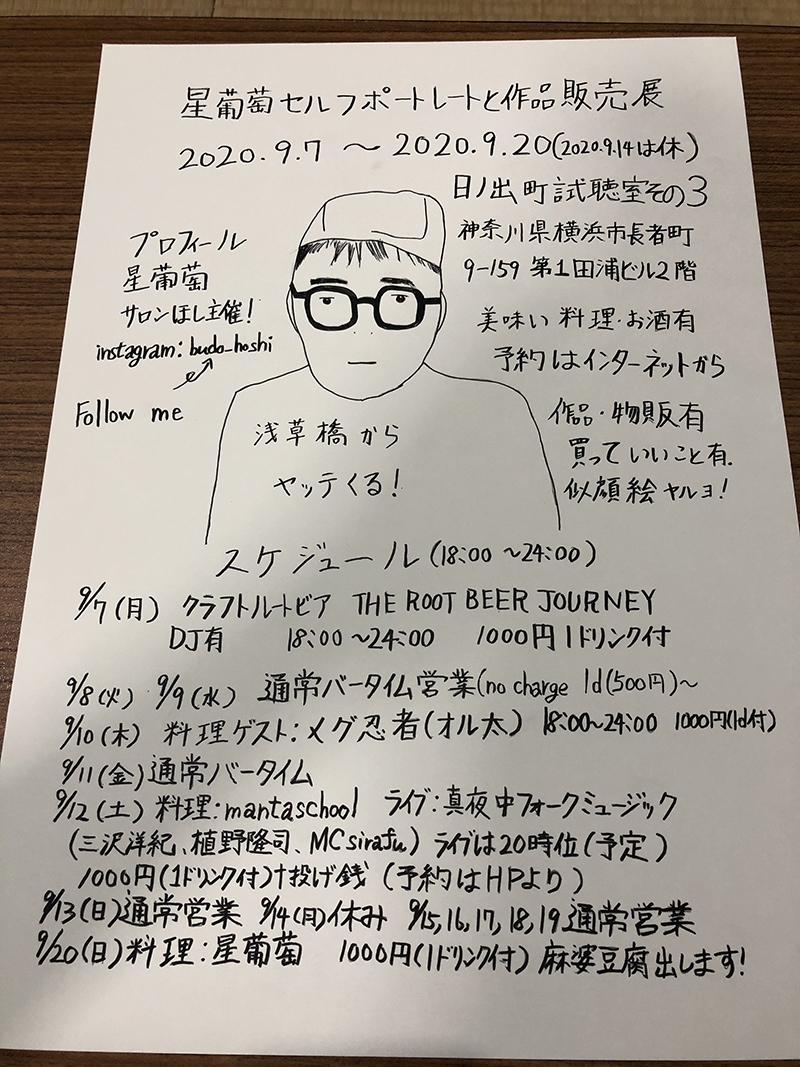 星葡萄セルフポートレートと作品販売展
2020.9.7 〜 2020.9.20(2020.9.14は休)
日ノ出町試聴室その3
神奈川県横浜市長者町
9-159 第1田浦ビル2階
美味い料理・お酒有
予約はインターネットから
作品・物販有
買っていいこと有.
似顔絵ヤルヨ!
プロフィール
星葡萄
サロンほし主催!
instagram: budo_hoshi
Follow me
浅草橋から
ヤッテくる!
スケジュール(18:00 〜24:00)
9/7(月) クラフトルートビア THE ROOT BEER JOURNEY
DJ有 18:00 〜24:00 1000円1ドリンク付
9/8(火) 9/9(水) 通常バータイム営業(no charge 1d(500円)〜
9/10(木) 料理ゲスト:メグ忍者(オル太) 18:00〜24:00 1000円(1d付)
9/11(金)通常バータイム
9/12(土) 料理:mantaschool ライブ:真夜中フォークミュージック
(三沢洋紀、植野隆司、MCsirafu) ライブは20時位(予定)
1000円(1ドリンク付)+投げ銭 (予約はHPより)
9/13(日)通常営業 9/14(月)休み 9/15,16,17,18,19通常営業
9/20(日)料理:星葡萄 1000円(1ドリンク付) 麻婆豆腐出します!